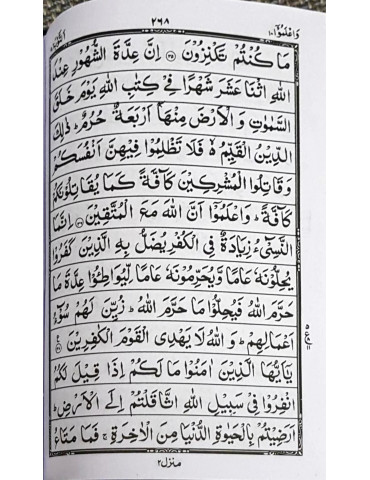 واعلموا ١٠
٢٦٨
مَا كُنْتُمْ تَكْنِزُوْنَ ﴿۳۵﴾ اِنَّ عِدَّةَ الشُّهُوْرِ عِنْدَ
اللّٰهِ اثْنَا عَشَرَ شَهْرًا فِیْ كِتٰبِ اللّٰهِ یَوْمَ خَلَقَ
السَّمٰوٰتِ وَ الْاَرْضَ مِنْهَاۤ اَرْبَعَةٌ حُرُمٌ ؕ ذٰلِكَ
الدِّیْنُ الْقَیِّمُ ۙ۬ فَلَا تَظْلِمُوْا فِیْهِنَّ اَنْفُسَكُمْ
وَ قَاتِلُوا الْمُشْرِكِیْنَ كَآفَّةً كَمَا یُقَاتِلُوْنَكُمْ
كَآفَّةً ؕ وَ اعْلَمُوْۤا اَنَّ اللّٰهَ مَعَ الْمُتَّقِیْنَ ﴿۳۶﴾ اِنَّمَا
النَّسِیْٓءُ زِیَادَةٌ فِی الْكُفْرِ یُضَلُّ بِهِ الَّذِیْنَ كَفَرُوْا
یُحِلُّوْنَهٗ عَامًا وَّ یُحَرِّمُوْنَهٗ عَامًا لِّیُوَاطِـُٔوْا عِدَّةَ مَا
حَرَّمَ اللّٰهُ فَیُحِلُّوْا مَا حَرَّمَ اللّٰهُ ؕ زُیِّنَ لَهُمْ سُوْٓءُ
اَعْمَالِهِمْ ؕ وَ اللّٰهُ لَا یَهْدِی الْقَوْمَ الْكٰفِرِیْنَ ﴿۳۷﴾
یٰۤاَیُّهَا الَّذِیْنَ اٰمَنُوْا مَا لَكُمْ اِذَا قِیْلَ لَكُمُ
انْفِرُوْا فِیْ سَبِیْلِ اللّٰهِ اثَّاقَلْتُمْ اِلَی الْاَرْضِ ؕ
اَرَضِیْتُمْ بِالْحَیٰوةِ الدُّنْیَا مِنَ الْاٰخِرَةِ ۚ فَمَا مَتَاعُ
منزل ٢